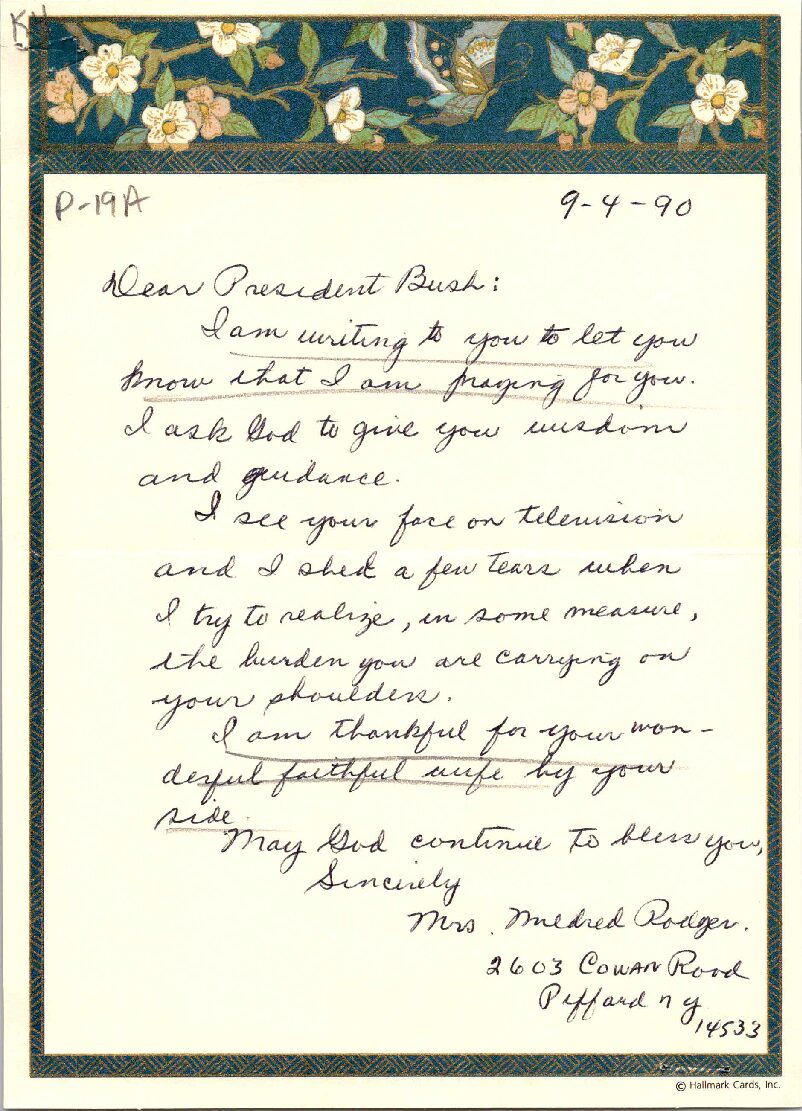 KH
P-19A
9-4-90
Dear President Bush:
I am writing to you to let you
know that I am praying for you.
I ask God to give you wisdom
and guidance.
I see your face on television
and I shed a few tears when
I try to realize, in some measure,
the burden you are carrying on
your shoulders.
I am thankful for your won-
derful faithful wife by your
side.
May God continue to bless you,
Sincerely
Mrs. Mildred Rodger.
2603 Cowan Road
Piffard ny
14533
© Hallmark Cards, Inc.